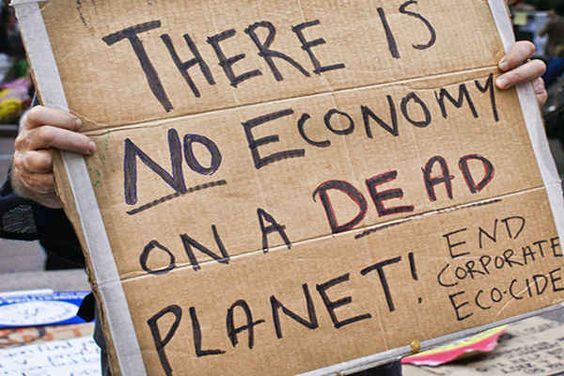 THERE IS
NO ECONOMY
ON A DEAD
PLANET!
END
CORPORATE
ECO-CIDE